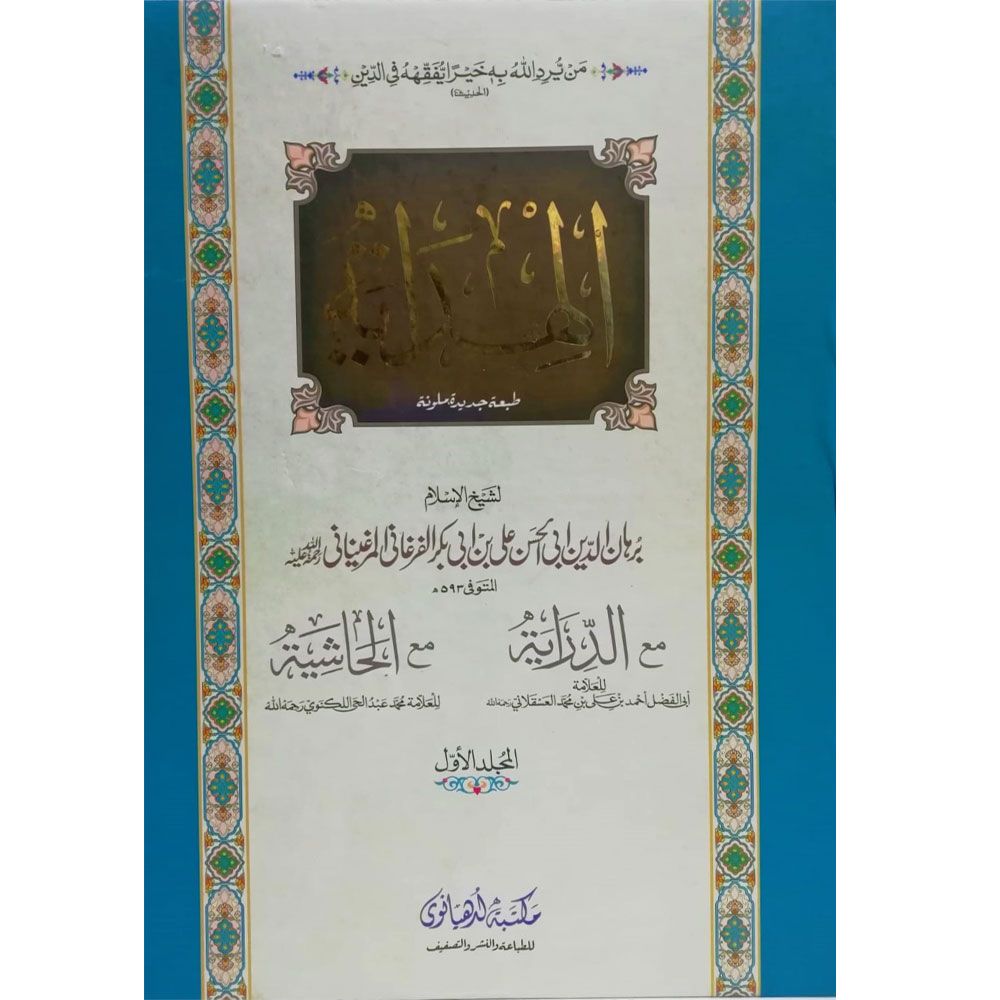 مَنْ يُّرِدِ اللهُ بِهٖ خَيْرًا يُّفَقِّهْهُ فِي الدِّيْنِ
(الحديث)
الهداية
طبعة جديدة ملونة
لشيخ الإسلام
برهان الدين ابی الحسن علی بن ابی بکر الفرغانی المرغینانی رحمة الله علیه
المتوفی ۵۹۳ھ
مع الدِّرَايَةُ
للعلامة
أبي الفضل أحمد بن علي بن محمد العسقلاني رحمه الله
مع الحَاشِيَةُ
للعلامة محمد عبد الحي اللكنوي رحمه الله
المجلد الأوّل
مکتبه لدهیانوی
للطباعة والنشر والتصفيف